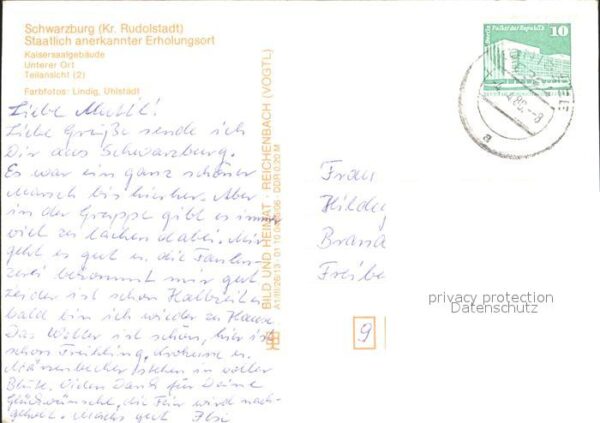 Schwarzburg (Kr. Rudolstadt)
Staatlich anerkannter Erholungsort
Kaisersaalgebäude
Unterer Ort
Teilansicht (2)
Farbfotos: Lindig, Uhlstädt
Liebe Mutti!
Liebe Grüße sende ich
Dir aus Schwarzburg.
Es war ein ganz schöner
Marsch bis hierher. Aber
in der Gruppe gibt es immer
viel zu lachen dabei. Mir
geht es gut u. die Faulen-
zerei bekommt mir gut
Leider ist schon Halbzeit
bald bin ich wieder zu Hause.
Das Wetter ist schön, hier ist
schon Frühling, Krokusse u.
Märzenbecher stehen in voller
Blüte. Vielen Dank für Deine
Glückwünsche, die Feier wird nach-
geholt. Machs gut Ilse
BILD UND HEIMAT · REICHENBACH (VOGTL)
A1/III/26/13 01 10 DDR 0,20 M
Palast der Republik
10
a
Frau
Hildeg
Brand
Freibe
9
privacy protection
Datenschutz